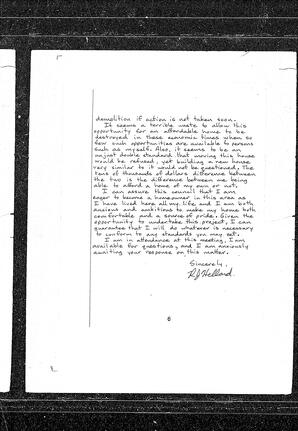 demolition if action is not taken soon.
It seems a terrible waste to allow this
opportunity for an affordable home to be
destroyed in these economic times when so
few such opportunities are available to persons
such as myself. Also, it seems to be an
unjust double standard that moving this house
would be refused, yet building a new house
very similar to it would not be questioned. The
tens of thousands of dollars difference between
the two is the difference between me being
able to afford a home of my own or not.
I can assure this council that I am
eager to become a homeowner in this area as
I have lived here all my life and I am both
anxious and ambitious to make my home both
comfortable and a source of pride. Given the
opportunity to undertake this project, I can
guarantee that I will do whatever is necessary
to conform to any standards you may set.
I am in attendance at this meeting, I am
available for questions, and I am anxiously
awaiting your response on this matter.
Sincerely,
6